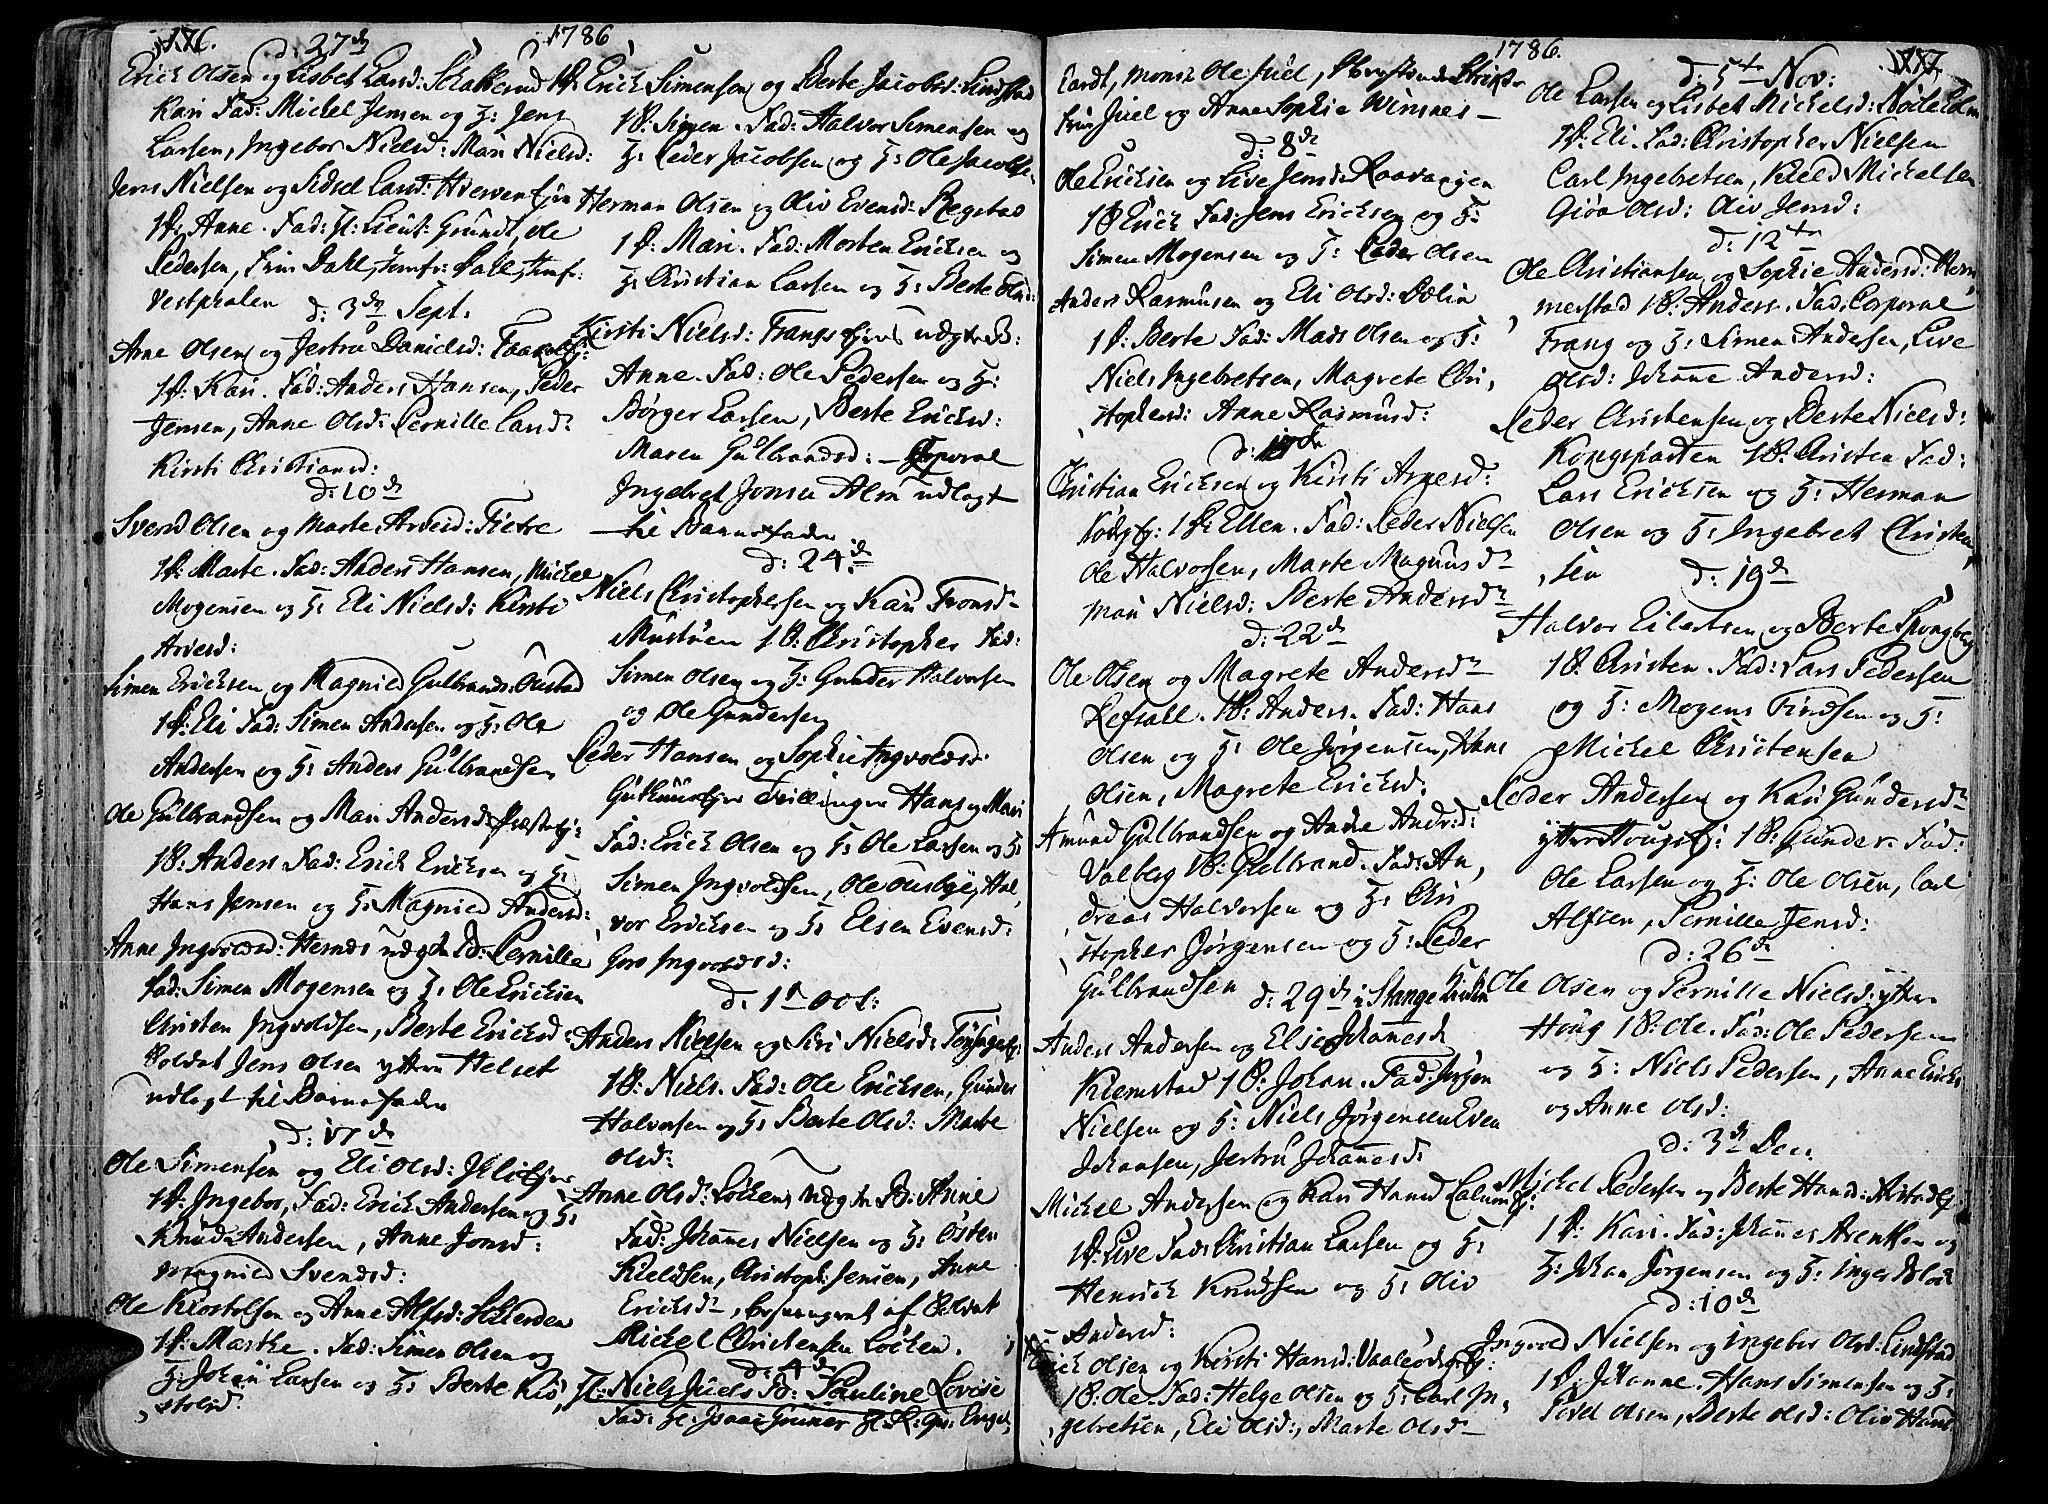 176.
1786
d: 27de
Erick Olsen og Lisbet Larsd: Skakkerud
Kari Fad: Michel Jensen og H: Jens
Larsen, Ingebor Nielsd: Mari Nielsd:
Jens Nielsen og Sidsel Larsd:
1 P: Anne. Fad: Hr: Lieut: Grundt, Ole
Pedersen, Frue Dahl, Jomfr: Dahl, Jomf:
Vestphalen
d: 3de Sept.
Arne Olsen og Jertru Danielsd:
1 P: Kari. Fad: Anders Hansen, Peder
Jensen, Anne Olsd: Pernille Larsd:
Kirsti Christiansd:
d: 10de
Svend Olsen og Marte Arvesd:
1 P: Marte. Fad: Anders Hansen, Michel
Mogensen og H: Eli Nielsd: Kirsti
Arvesd:
Simen Ericksen og Magnild Gulbrands: Oustad
1 P: Eli Fad: Simen Andersen og H: Ole
Andersen og H: Anders Gulbrandsen
Ole Gulbrandsen og Mari Andersd:
1 B: Anders Fad: Erick Ericksen og H:
Hans Jensen og H: Magnild Andersd:
Anne Ingvoldsd: Hernes uægte P: Pernille
Fad: Simen Mogensen og H: Ole Ericksen
Christen Ingvoldsen, Berte Ericksd:
Soldat Jens Olsen yttre Helset
udlagt til Barnefader
d: 17de
Ole Simensen og Eli Olsd:
1 P: Ingebor, Fad: Erick Andersen og H:
Knud Andersen, Anne Jonsd:
Magnild Svendsd:
Ole Kiostolsen og Anne Alfsd:
1 P: Marthe. Fad: Simen Olsen og
H: Johan Larsen og H: Berte Kio,
stolsd:
1 P: Erick Simensen og Berte Jacobsd: Lindstad
1 B: Simen. Fad: Halvor Simensen og
H: Peder Jacobsen og H: Ole Jacobse,
Herman Olsen og Oliv Evensd: Regstad
1 P: Mari. Fad: Morten Ericksen og
H: Christian Larsen og H: Berte Olsd:
Kirsti Nielsd: uægte B:
Anne. Fad: Ole Pedersen og H:
Børger Larsen, Berte Ericksd:
Maren Gulbrandsd: — Corporal
Ingebret Jonsen Alm udlagt
til Barnefader
d: 24de
Niels Christophersen og Kari Tronsd:
1 B: Christopher Fad:
Simen Olsen og H: Gunder Halvorsen
og Ole Gundersen
Peder Hansen og Sophie Ingvoldsd:
Tvillinger Hans og Mari
Fad: Erick Olsen og H: Ole Larsen og H:
Simen Ingvoldsen, Ole Ousbye, Hal,
vor Ericksen og H: Elsen Evensd:
Goro Ingvoldsd:
d: 1te Oct:
Anders Nielsen og Siri Nielsd:
1 B: Niels. Fad: Ole Ericksen, Gunder
Halvorsen og H: Berte Olsd: Marte
Olsd:
Anne Olsd: Løcken, uægte B: Anne
Fad: Johannes Nielsen og H: Osten
Kieldsen, Christoph: Jensen, Anne
Ericksd:, besvangret af Soldat
Michel Christensen Løcken.
d: 4de
Hr: Niels Juels B: Pauline Lovise
Fad: Hr: Isaac Gruner
1786.
177.
Monsr Ole Juel,
Frue Juel og Anne Sophie Winsnes —
d: 8de
Ole Ericksen og Live Jensd:
1 B: Erick Fad: Jens Ericksen og H:
Simen Mogensen og H: Peder Olsen
Anders Rasmusen og Eli Olsd: Dælin
1 P: Berte Fad: Mads Olsen og H:
Niels Ingebretsen, Magrete Chri,
stophersd: Anne Rasmusd:
Christian Ericksen og Kirsti Arnesd:
1 P: Ellen. Fad: Peder Nielsen
Ole Halvorsen, Marte Magnusd:
Mari Nielsd: Berte Andersd:
d: 22de
Ole Olsen og Magrete Andersd:
Lefsall. 1 B: Anders. Fad: Hans
Olsen og H: Ole Jørgensen, Hans
Olsen, Magrete Ericksd:
Amund Gulbrandsen og
Valberg 1 B: Gulbrand. Fad: An,
dreas Halvorsen og H: Chri
stopher Jørgensen og H: Peder
Gulbrandsen
d: 29de i Stange Kirke
Anders Andersen og Elie Johannesd:
Kiemstad 1 B: Johan. Fad: Jørgen
Nielsen og H: Niels Jørgensen Even
Johansen, Jertru Johannesd:
Michel Andersen og Kari Hansd:
1 P: Live Fad: Christian Larsen og H:
Henrick Knudsen og H: Oliv
Andersd:
Erick Olsen og Kirsti Hansd:
1 B: Ole. Fad: Helge Olsen og H: Carl In,
gebretsen, Eli Olsd:, Marte Olsd:
d: 5te Nov:
Ole Larsen og Lisbet Michelsd:
1 P: Eli. Fad: Christopher Nielsen
Carl Ingebretsen, Kield Michelsen
Giøa Olsd: Oliv Jensd:
d: 12te
Ole Christiansen og Sophie Andersd: Hem,
merstad 1 B: Anders. Fad: Corporal
Frang og H: Simen Andersen, Live
Olsd: Johanne Andersd:
Peder Christensen og Berte Nielsd:
Kongsparten 1 B: Christen Fad:
Lars Ericksen og H: Herman
Olsen og H: Ingebret Christen,
sen
d: 19de
Halvor Eilertsen og Berte
1 B: Christen. Fad: Lars Pedersen
og H: Mogens Findsen og H:
Michel Christensen
Peder Andersen og Kari Gundersd:
1 B: Gunder. Fad:
Ole Larsen og H: Ole Olsen, Carl
Alfsen, Pernille Jensd:
d: 26de
Ole Olsen og Pernille Nielsd: yttre
Houg 1 B: Ole. Fad: Ole Pedersen
og H: Niels Pedersen, Anne Ericks
og Anne Olsd:
d: 3de Dec.
Michel Pedersen og Berte Hansd:
1 P: Kari. Fad: Johannes Arentsen og
H: Johan Jørgensen og H: Inger
d: 10de
Ingvold Nielsen og Ingebor Olsd: Lindstad
1 P: Johanne. Hans Simensen og H:
Povel Olsen, Berte Olsd: Oliv Hansd